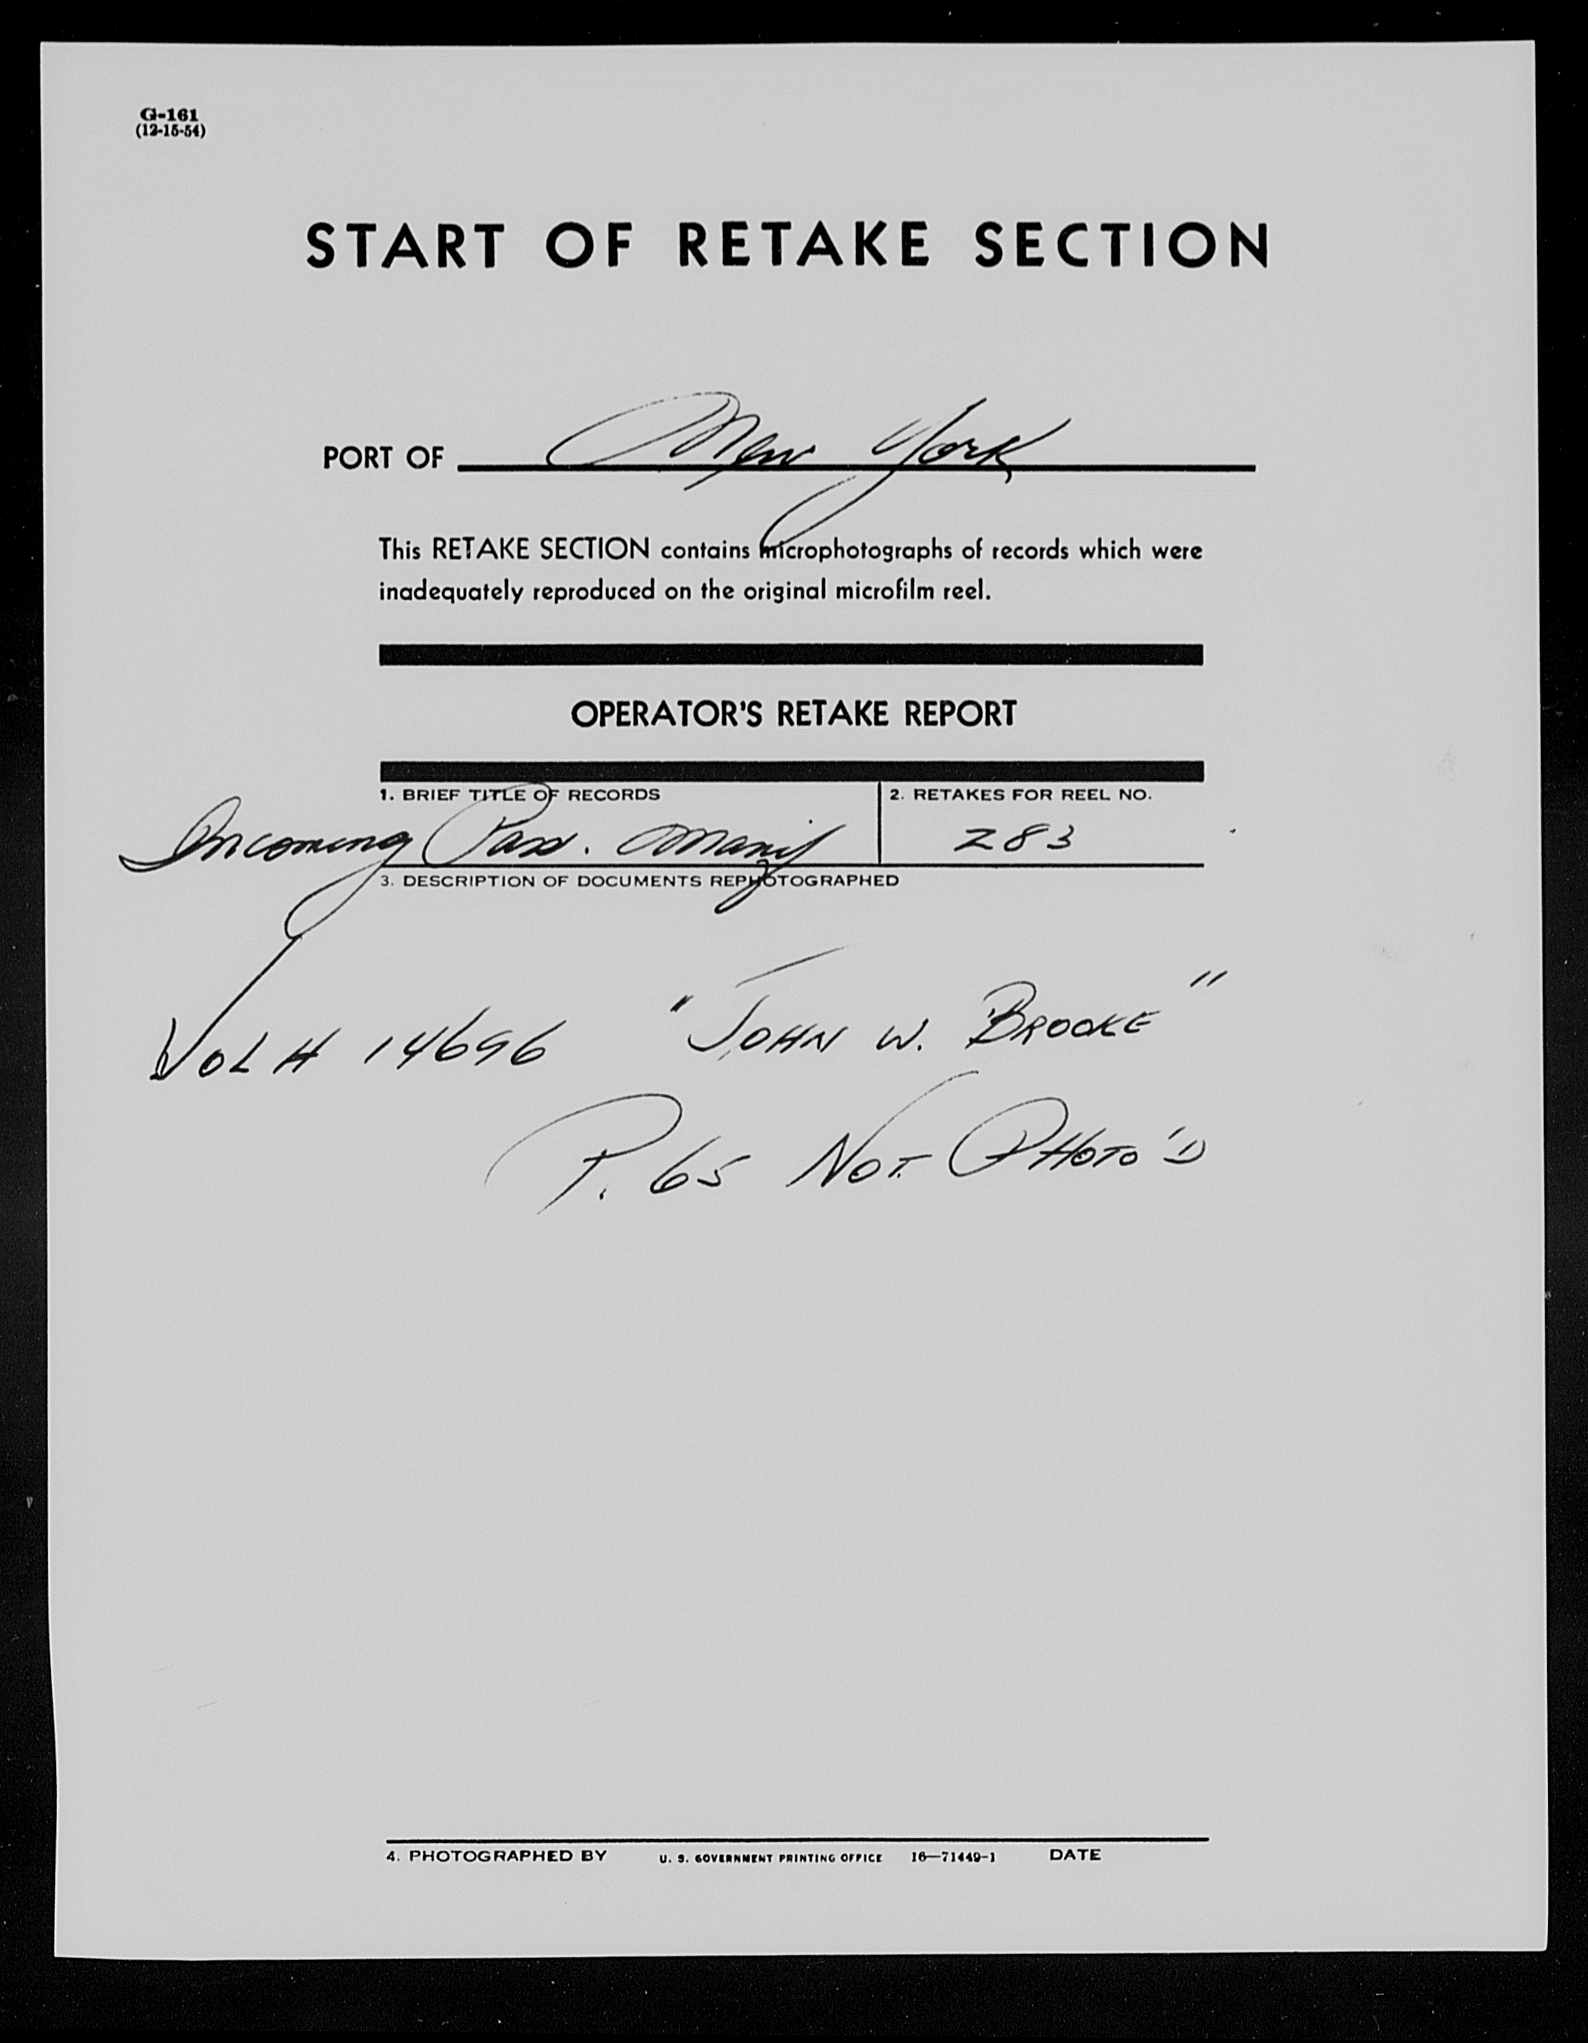 G-161
(12-15-54)
START OF RETAKE SECTION
PORT OF New York
This RETAKE SECTION contains microphotographs of records which were
inadequately reproduced on the original microfilm reel.
OPERATOR'S RETAKE REPORT
1. BRIEF TITLE OF RECORDS
2. RETAKES FOR REEL NO.
Incoming Pass. Manif
283
3. DESCRIPTION OF DOCUMENTS REPHOTOGRAPHED
VOL # 14696 "JOHN W. BROOKE"
P. 65 NOT PHOTO'D
4. PHOTOGRAPHED BY U. S. GOVERNMENT PRINTING OFFICE 16—71449-1 DATE